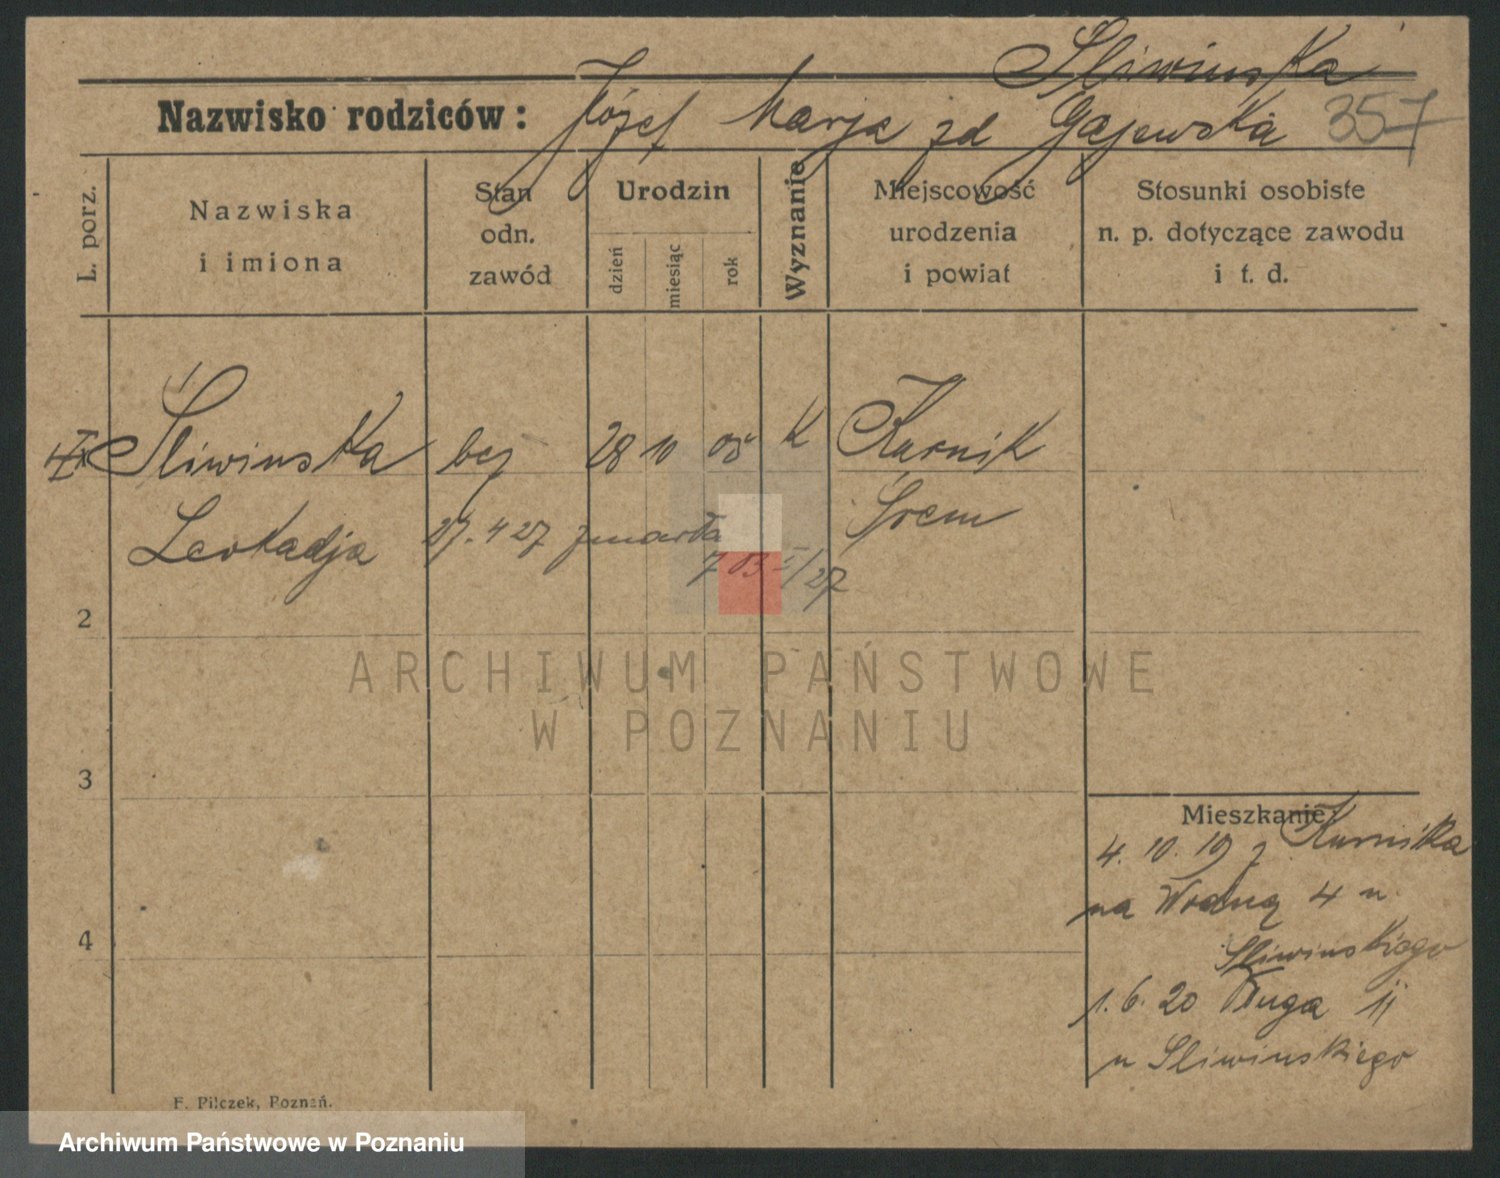 Śliwinska
Nazwisko rodziców: Józef Marja zd Gajewska 357
L. porz.
Nazwiska
i imiona
Stan
odn.
zawód
Urodzin
dzień
miesiąc
rok
Wyznanie
Miejscowość
urodzenia
i powiat
Stosunki osobiste
n. p. dotyczące zawodu
i t. d.
Śliwinska bez 28 10 05 K Kurnik
Leokadja 27.4 27 zmarła Śrem
703 /27
2
3
4
Mieszkanie:
4. 10. 19 z Kurnika
na Wodną 4 u
Śliwinskiego
1. 6. 20 Długa 11
u Śliwinskiego
F. Pilczek, Poznań.
ARCHIWUM PAŃSTWOWE
W POZNANIU
Archiwum Państwowe w Poznaniu